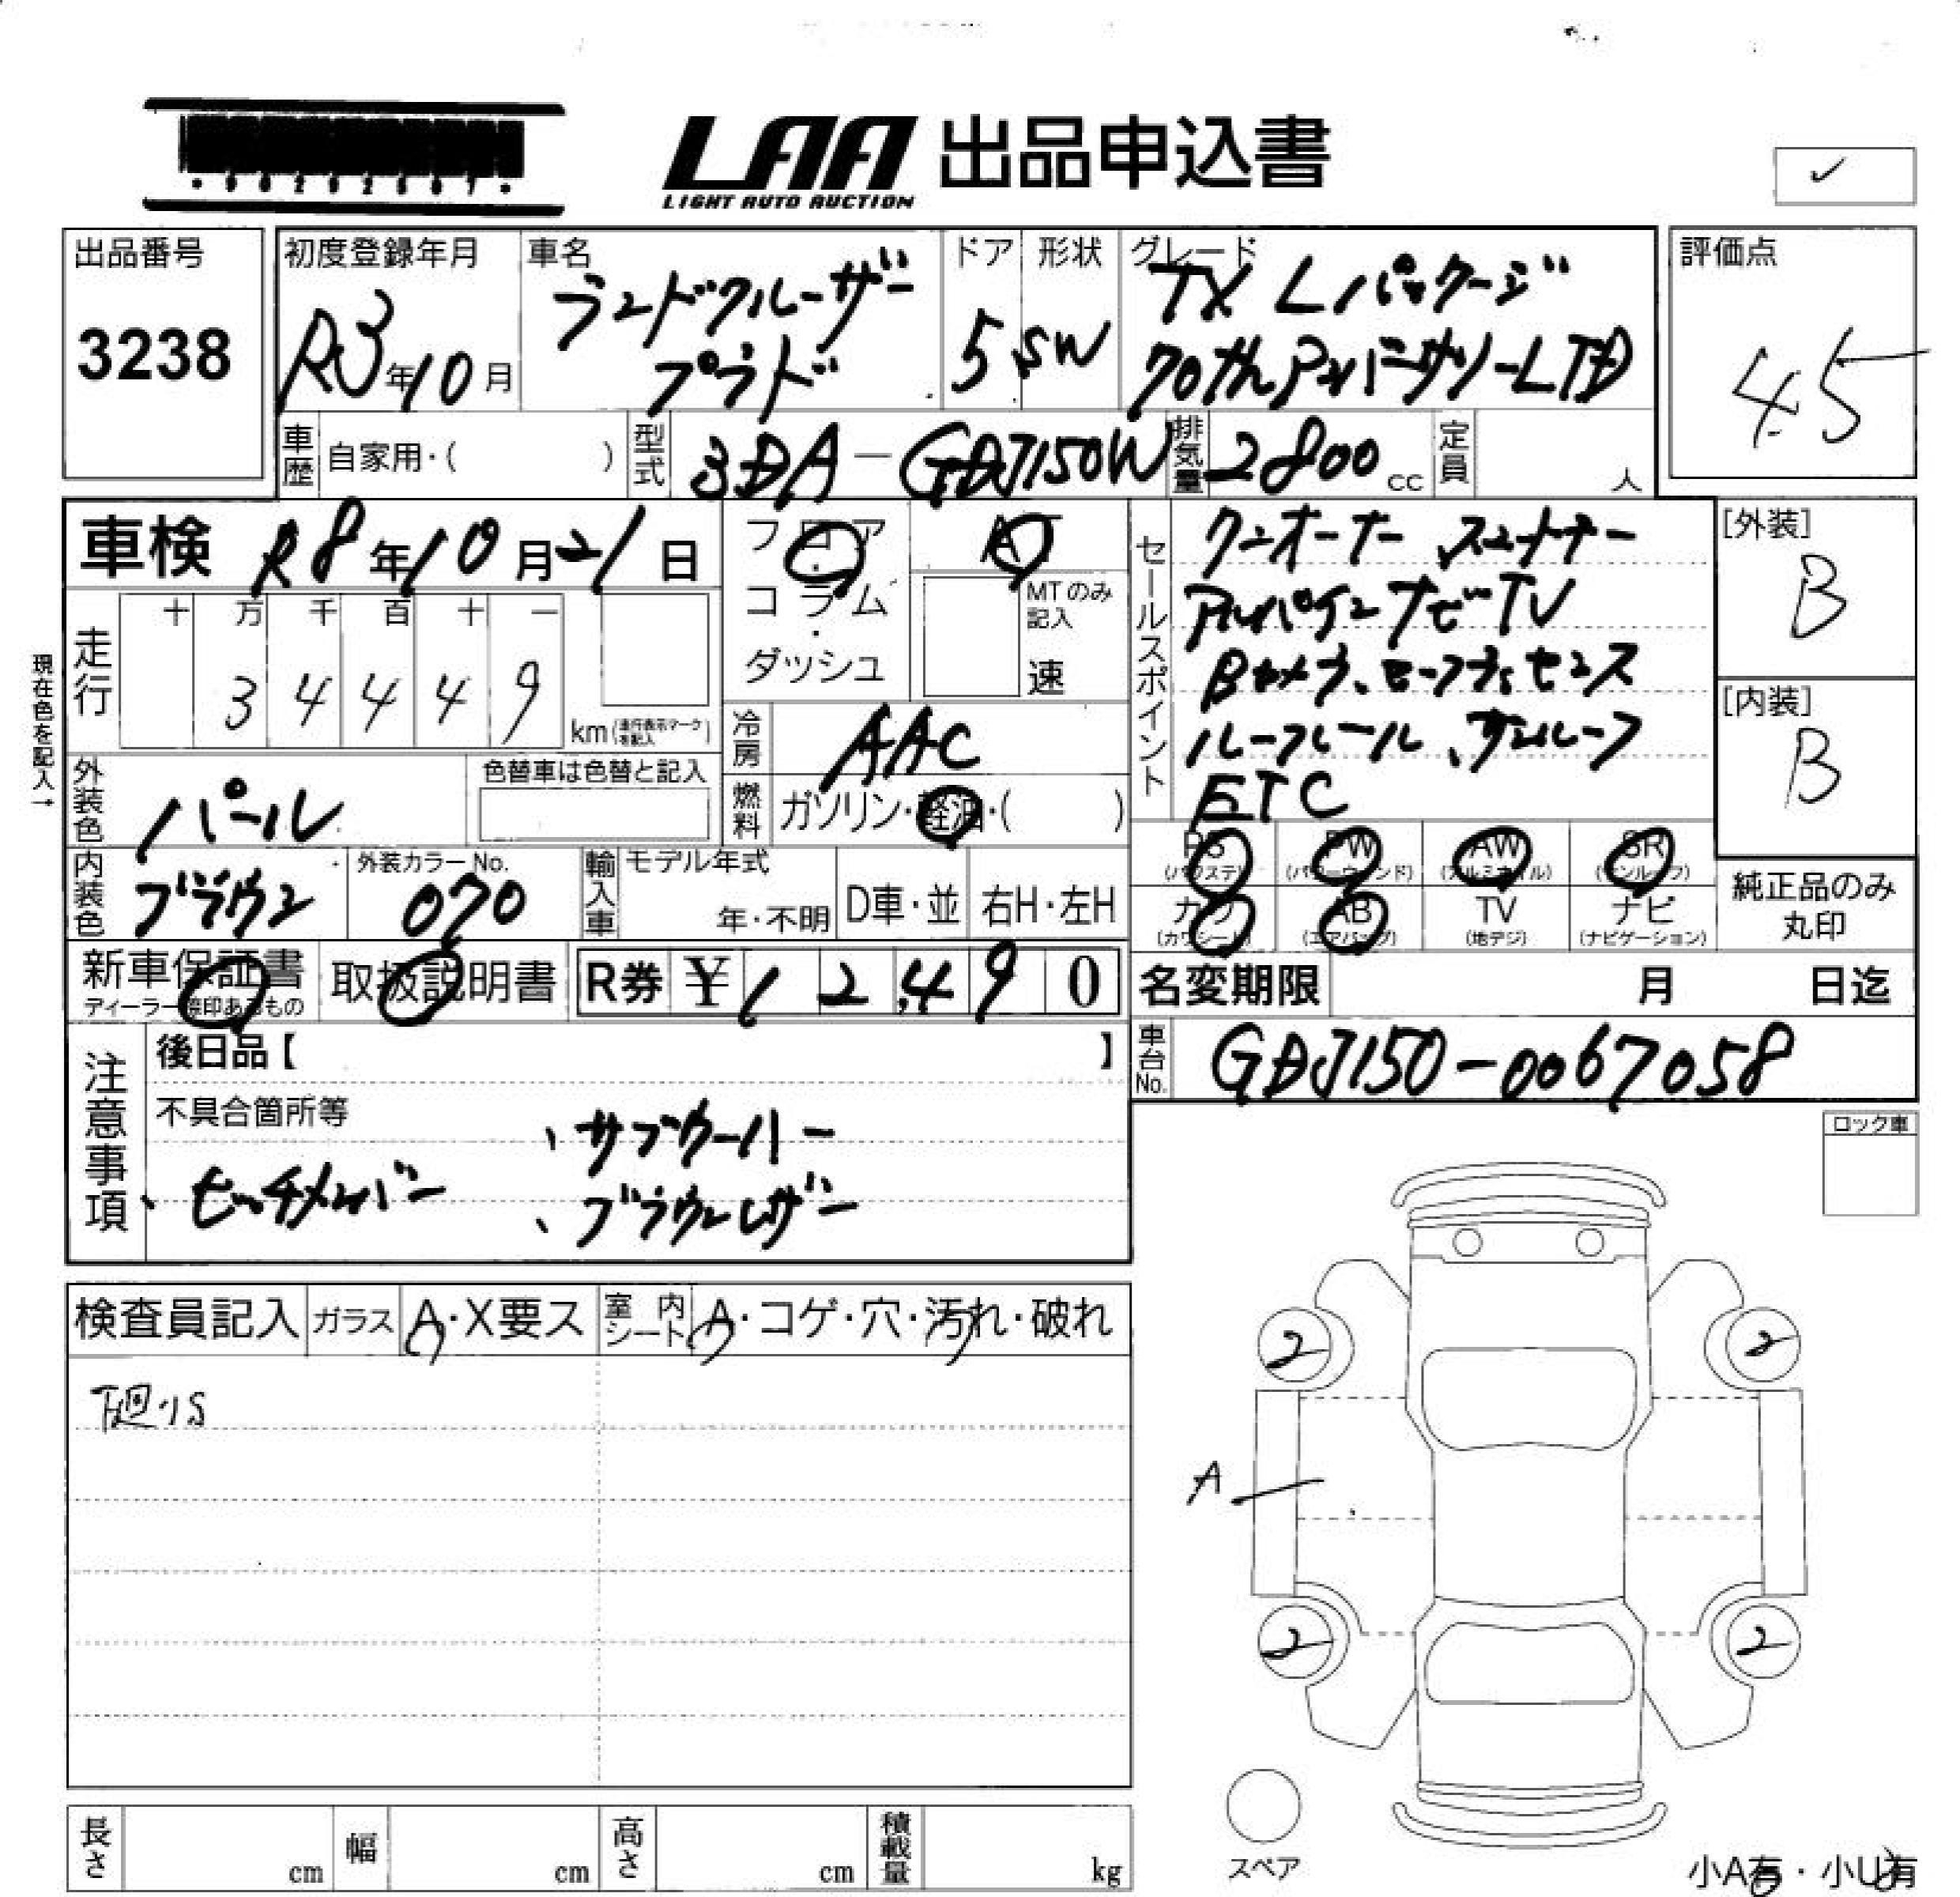 LAA 出品申込書
LIGHT AUTO AUCTION
出品番号
3238
初度登録年月
R3年10月
車名
ランドクルーザー
プラド
ドア
5
形状
SW
グレード
TX Lパッケージ
70thアニバーサリーLTD
評価点
4.5
車歴 自家用・( )
型式 3DA-GDJ150W
排気量 2800cc
定員 人
車検 R8年10月21日
フロア・コラム・ダッシュ
AT
MTのみ記入
速
走行
十 万 千 百 十 一
3 4 4 4 9
km(走行表示マークを記入)
現在色を記入→
外装色 パール
色替車は色替と記入
冷房 AAC
燃料 ガソリン・軽油・( )
内装色 ブラウン
外装カラーNo.
070
輸入車
モデル年式
年・不明
D車・並
右H・左H
セールスポイント
ワンオーナー スマートキー
アルパインナビTV
Bカメラ、セーフティセンス
ルーフレール、サンルーフ
ETC
[外装]
B
[内装]
B
PS (パワステ)
PW (パワーウィンド)
AW (アルミホイル)
SR (サンルーフ)
カワ (カワシート)
AB (エアバッグ)
TV (地デジ)
ナビ (ナビゲーション)
純正品のみ
丸印
新車保証書
ディーラー捺印あるもの
取扱説明書
R券 ¥12,490
名変期限 月 日迄
車台No. GDJ150-0067058
注意事項
後日品【 】
不具合箇所等
、サブウーハー
、ヒッチメンバー
、ブラウンレザー
ロック車
検査員記入
ガラス A・X要ス
室内シート A・コゲ・穴・汚れ・破れ
下廻りS
2
2
A
2
2
スペア
長さ cm
幅 cm
高さ cm
積載量 kg
小A有・小U有